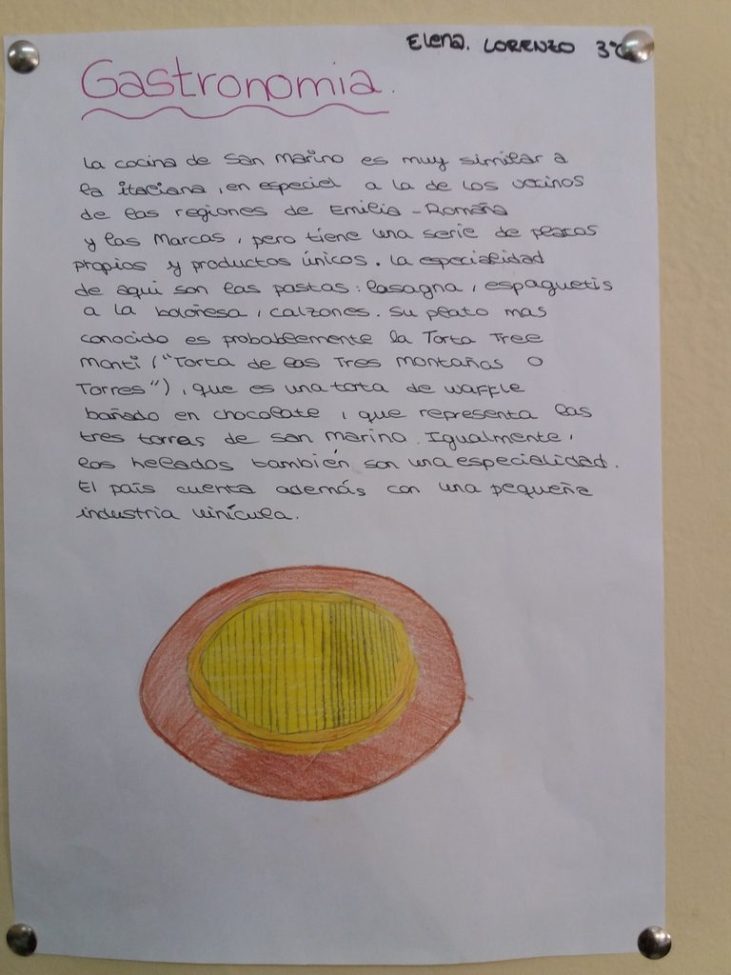 Elena. LORENZO 3ºC
Gastronomia.
La cocina de San Marino es muy similar a
la italiana, en especial a la de los vecinos
de las regiones de Emilia-Romaña
y las Marcas, pero tiene una serie de platos
propios y productos únicos. La especialidad
de aqui son las pastas: lasagna, espaguetis
a la boloñesa, calzones. Su plato mas
conocido es probablemente la Torta Tree
Monti ("Torta de las Tres Montañas o
Torres"), que es una torta de waffle
bañado en chocolate, que representa las
tres torres de San Marino. Igualmente,
los helados también son una especialidad.
El país cuenta además con una pequeña
industria vinícula.